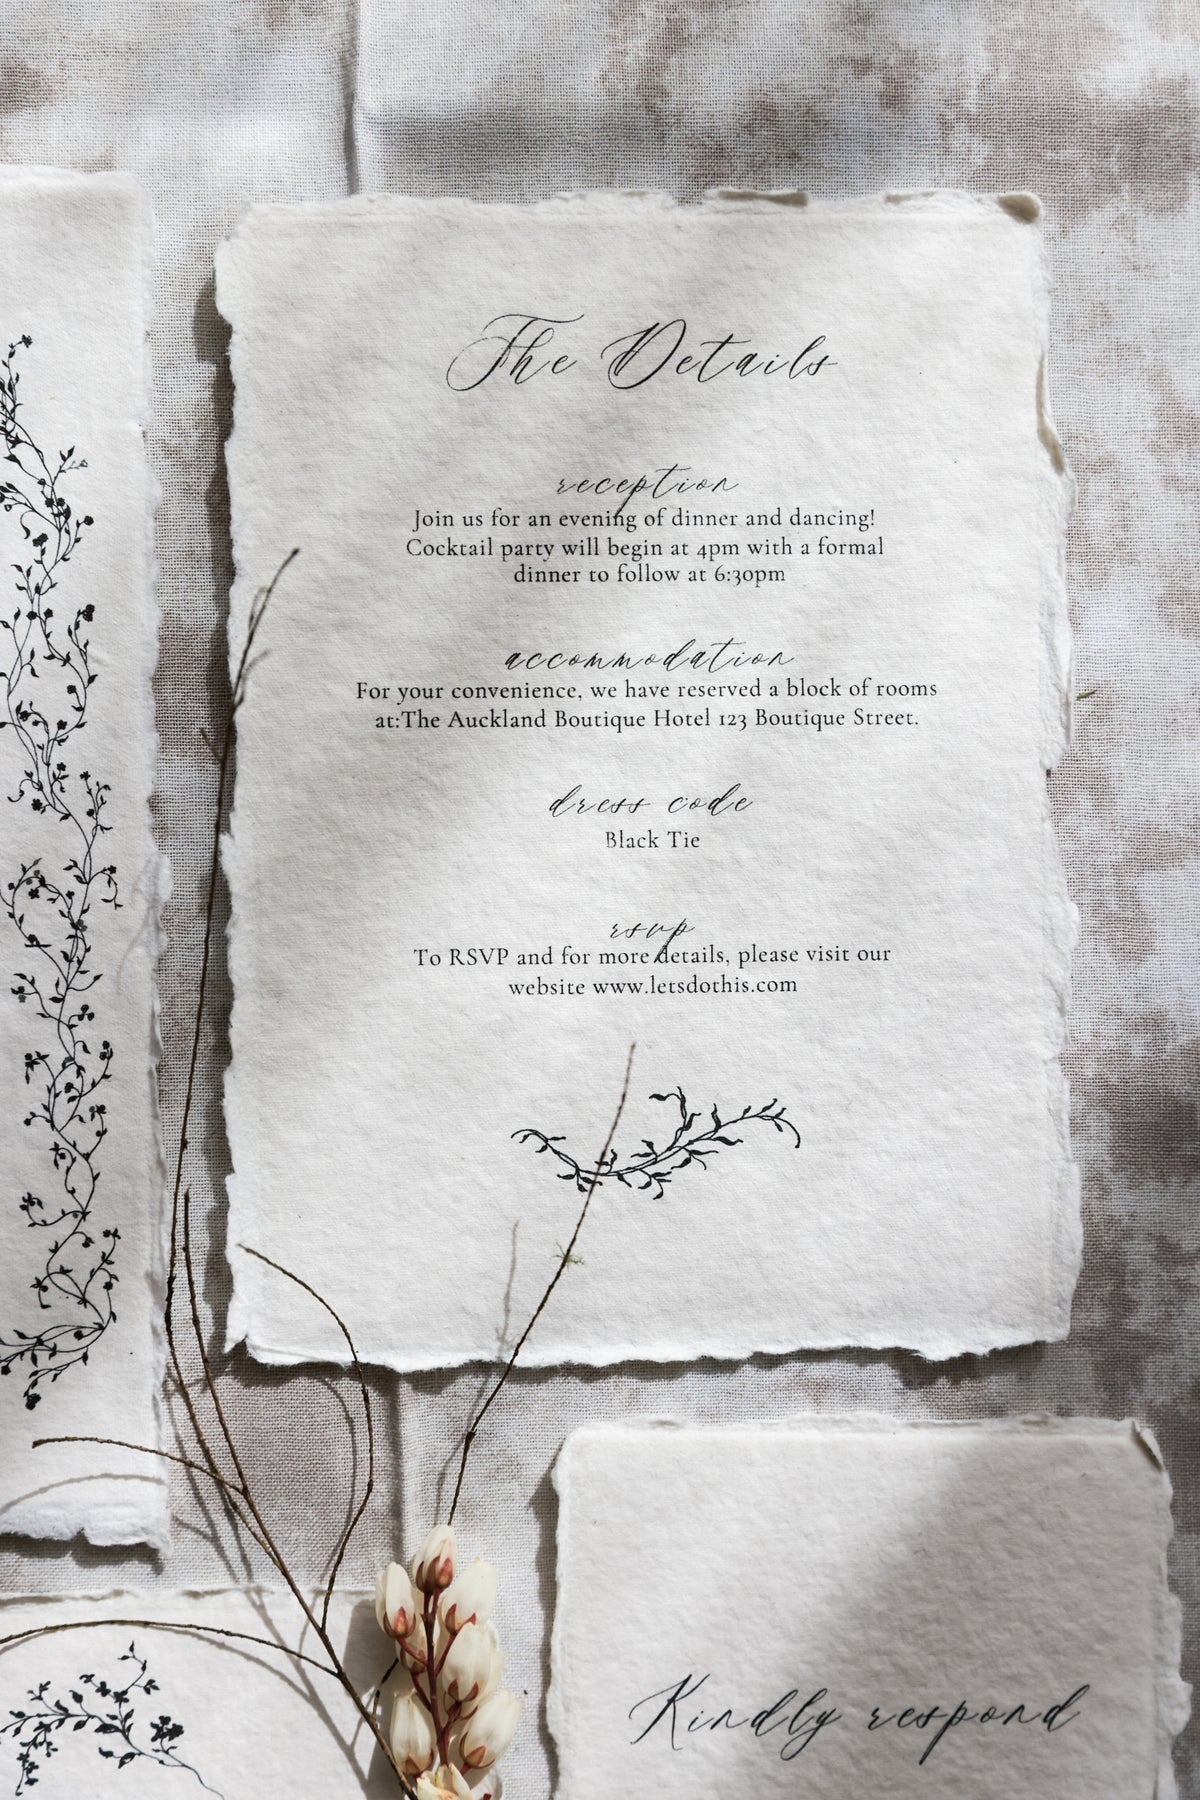 The Details
reception
Join us for an evening of dinner and dancing!
Cocktail party will begin at 4pm with a formal
dinner to follow at 6:30pm
accommodation
For your convenience, we have reserved a block of rooms
at:The Auckland Boutique Hotel 123 Boutique Street.
dress code
Black Tie
rsvp
To RSVP and for more details, please visit our
website www.letsdothis.com
Kindly respond